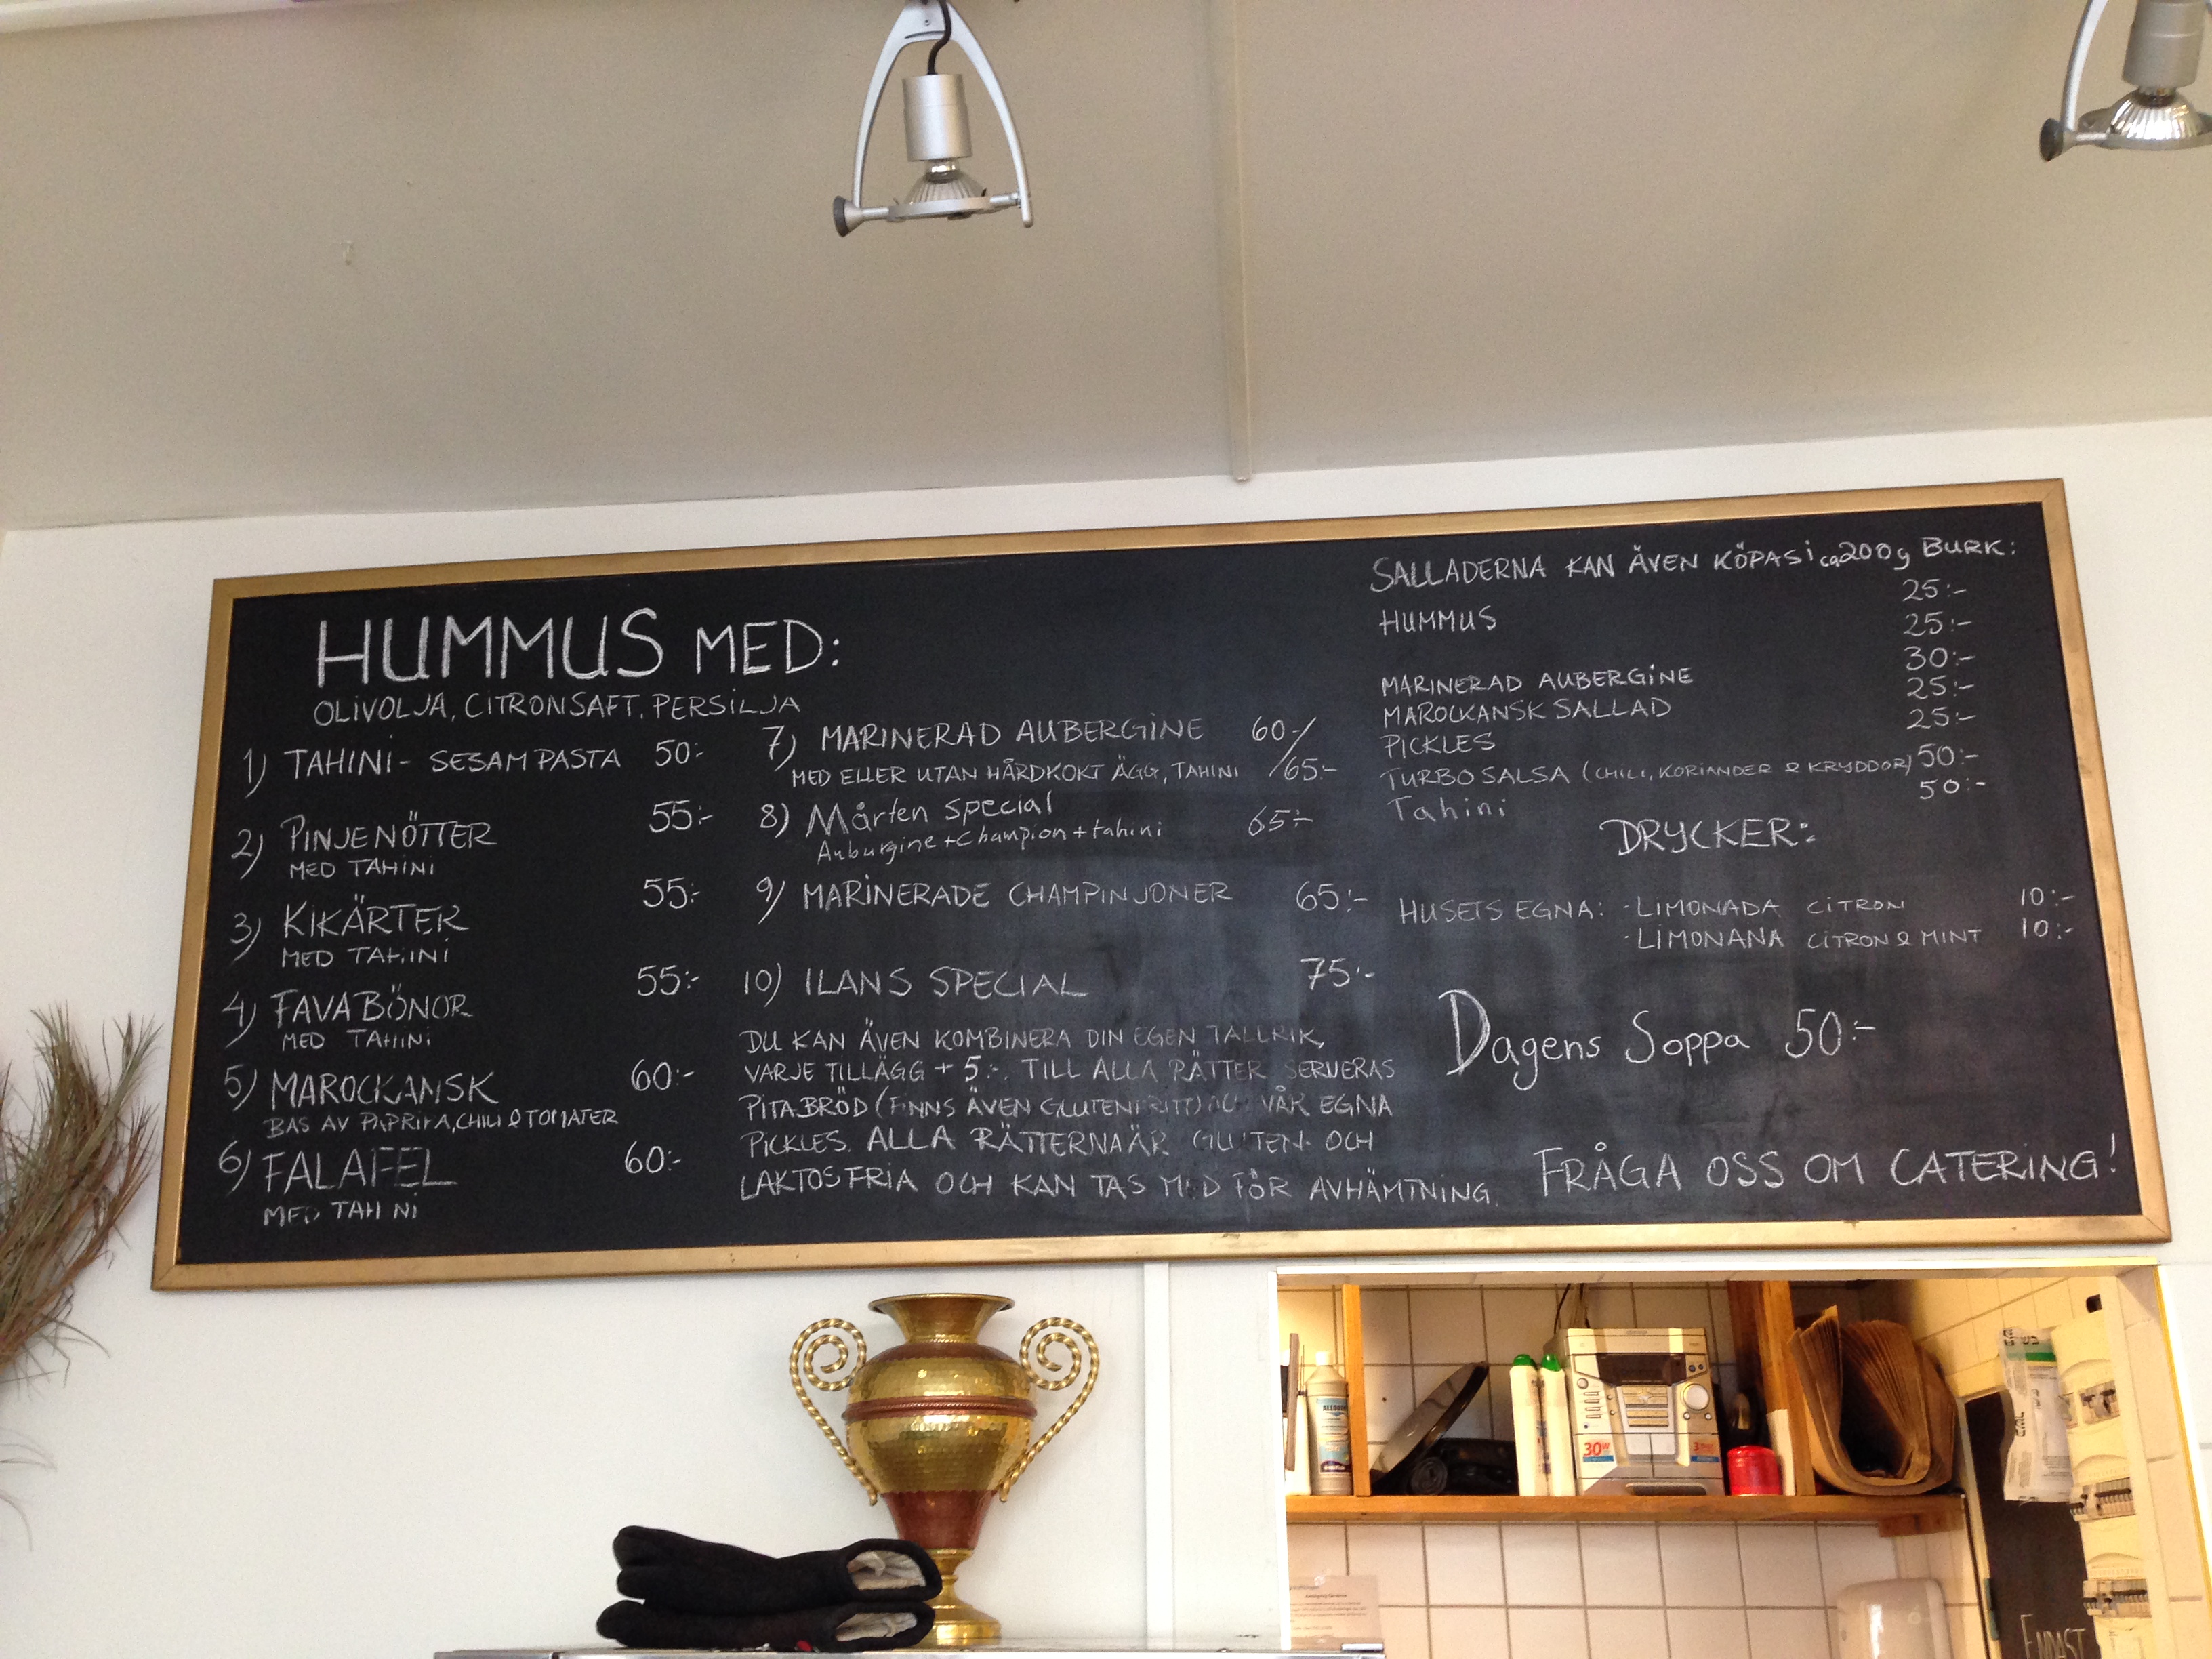 HUMMUS MED:
OLIVOLJA, CITRONSAFT, PERSILJA
1) TAHINI - SESAMPASTA 50:-
2) PINJENÖTTER 55:-
MED TAHINI
3) KIKÄRTER 55:-
MED TAHINI
4) FAVABÖNOR 55:-
MED TAHINI
5) MAROCKANSK 60:-
BAS AV PAPRIKA, CHILI & TOMATER
6) FALAFEL 60:-
MED TAHINI
7) MARINERAD AUBERGINE 60:-/
MED ELLER UTAN HÅRDKOKT ÄGG, TAHINI /65:-
8) Mårten Special 65:-
Auburgine + Champion + tahini
9) MARINERADE CHAMPINJONER 65:-
10) ILANS SPECIAL 75:-
DU KAN ÄVEN KOMBINERA DIN EGEN TALLRIK,
VARJE TILLÄGG + 5:-. TILL ALLA RÄTTER SERVERAS
PITABRÖD (FINNS ÄVEN GLUTENFRITT) OCH VÅR EGNA
PICKLES. ALLA RÄTTERNA ÄR GLUTEN- OCH
LAKTOSFRIA OCH KAN TAS MED FÖR AVHÄMTNING.
SALLADERNA KAN ÄVEN KÖPAS i ca 200g BURK:
25:-
HUMMUS 25:-
30:-
MARINERAD AUBERGINE 25:-
MAROCKANSK SALLAD 25:-
PICKLES
TURBO SALSA (CHILI, KORIANDER & KRYDDOR) 50:-
Tahini 50:-
DRYCKER:
HUSETS EGNA: ·LIMONADA CITRON 10:-
·LIMONANA CITRON & MINT 10:-
Dagens Soppa 50:-
FRÅGA OSS OM CATERING!
30W
ENDAST